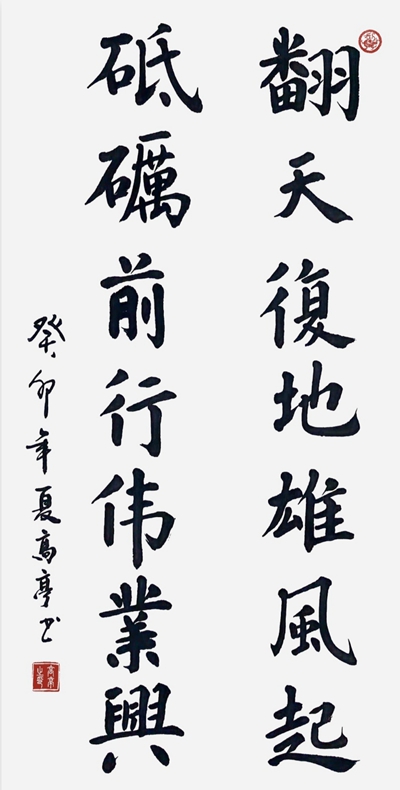 翻天復地雄風起
砥礪前行伟業興
癸卯年夏高亭书